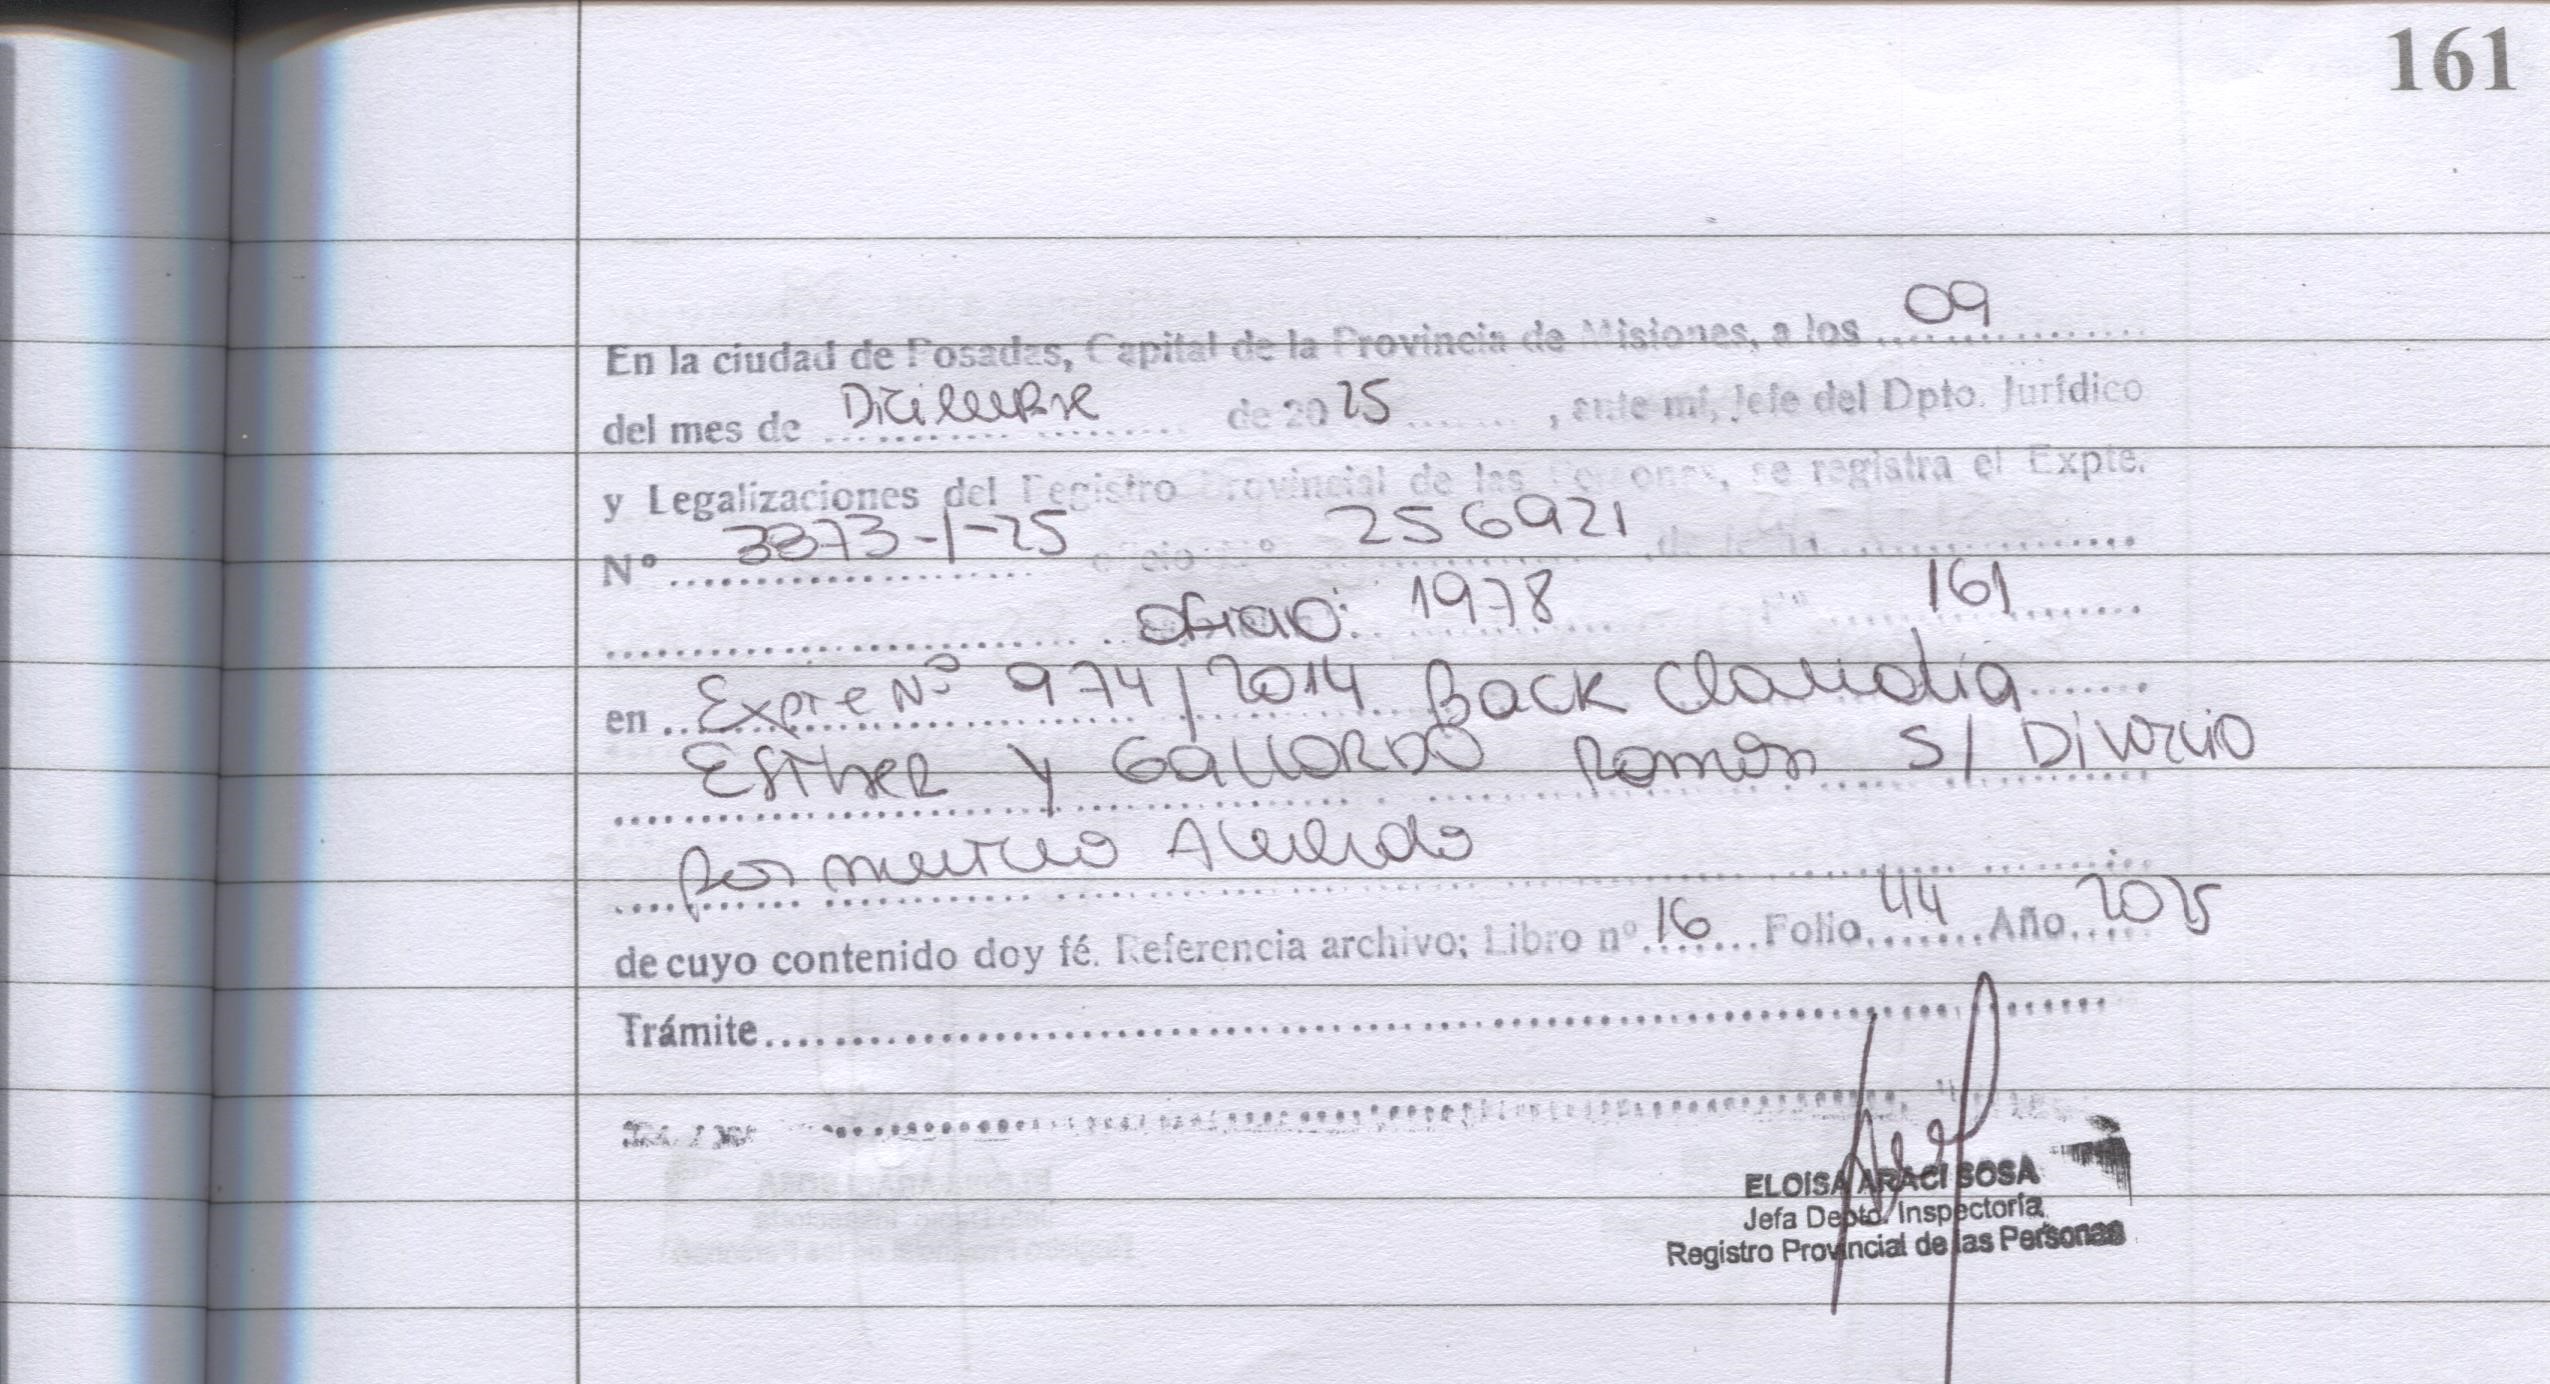 161
En la ciudad de Posadas, Capital de la Provincia de Misiones, a los 09
del mes de Diciembre de 2025, ante mí, Jefe del Dpto. Jurídico
y Legalizaciones del Registro Provincial de las Personas, se registra el Expte.
N° 3873-1-25 oficio N° 256921
oficio: 1978 161
en Expte Nº 974/2014 Back Claudia
Esther y GallORDO Ramon S/ Divorcio
por mutuo Acuerdo
de cuyo contenido doy fé. Referencia archivo; Libro nº 16 Folio 44 Año 2025
Trámite
ELOISA ARACI SOSA
Jefa Depto. Inspectoría
Registro Provincial de las Personas